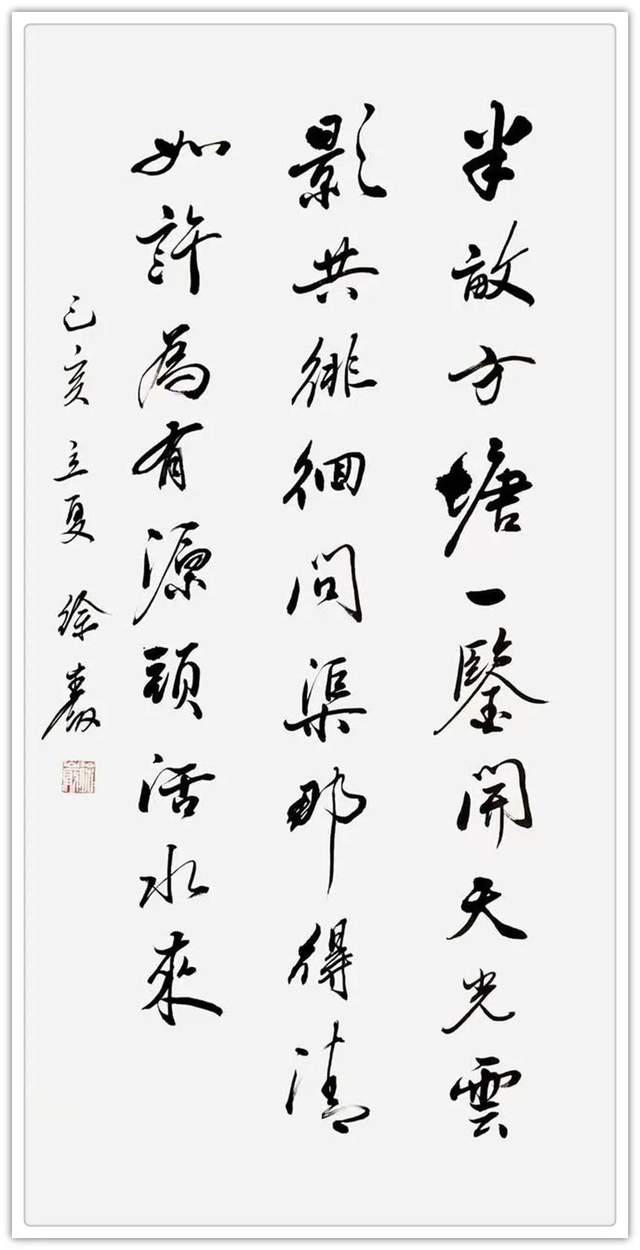 半畝方塘一鑒開天光雲
影共徘徊問渠那得清
如許為有源頭活水來
己亥立夏 徐